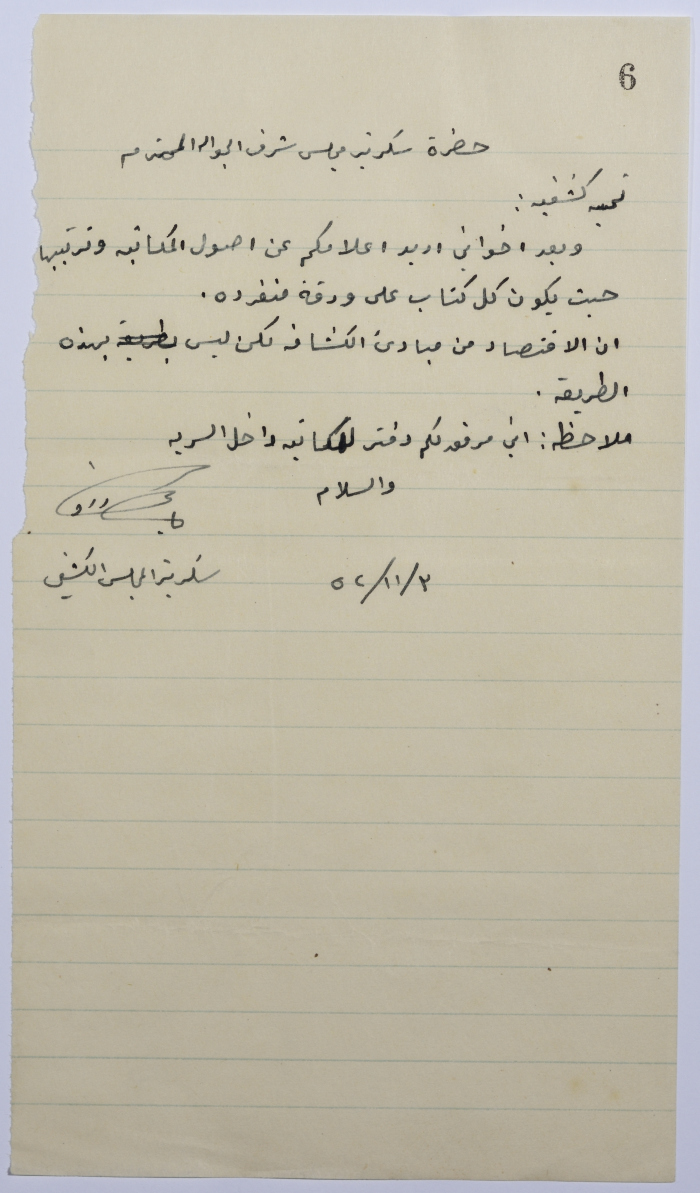 6
حضرة سكرتير مجلس شرف الجواله المحترم
تحيه كشفيه :
وبعد اخواني اريد اعلامكم عن اصول المكاتبه وترتيبها
حيث يكون كل كتاب على ورقة منفرده .
ان الاقتصاد من مبادئ الكشافه لكن ليس بطريقة بهذه
الطريقه .
ملاحظة : اني مرفق لكم دفتر للمكاتبه داخل السريه
والسلام
سكرتير المجلس الكشفي
٥٢/١١/٣